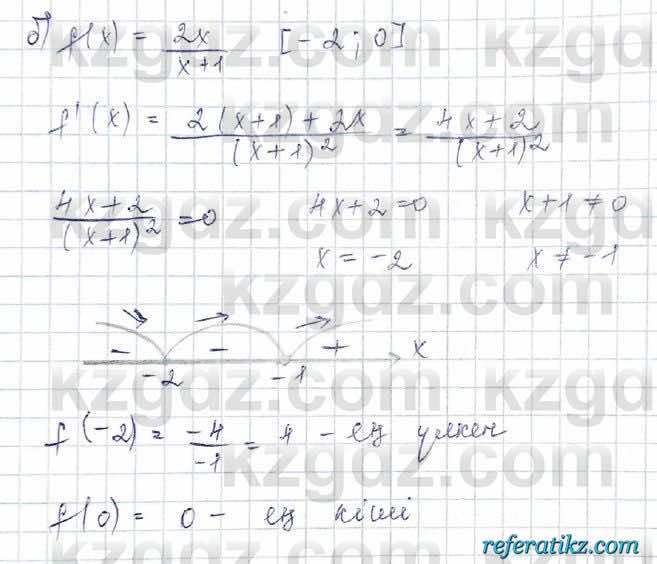 б) f(x) = 2x / x+1 [-2; 0]
f'(x) = 2(x+1)+2x / (x+1)² = 4x+2 / (x+1)²
4x+2 / (x+1)² = 0 4x+2=0 x+1≠0
x = -2 x ≠ -1
- - + x
-2 -1
f(-2) = -4 / -1 = 4 - ең үлкен
f(0) = 0 - ең кіші
kzgdz.com
referatikz.com